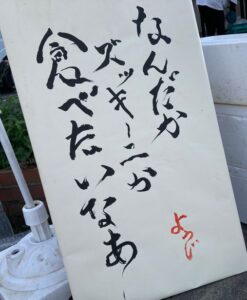 なんだか
ズッキーニが
食べたいなあー
よつじ